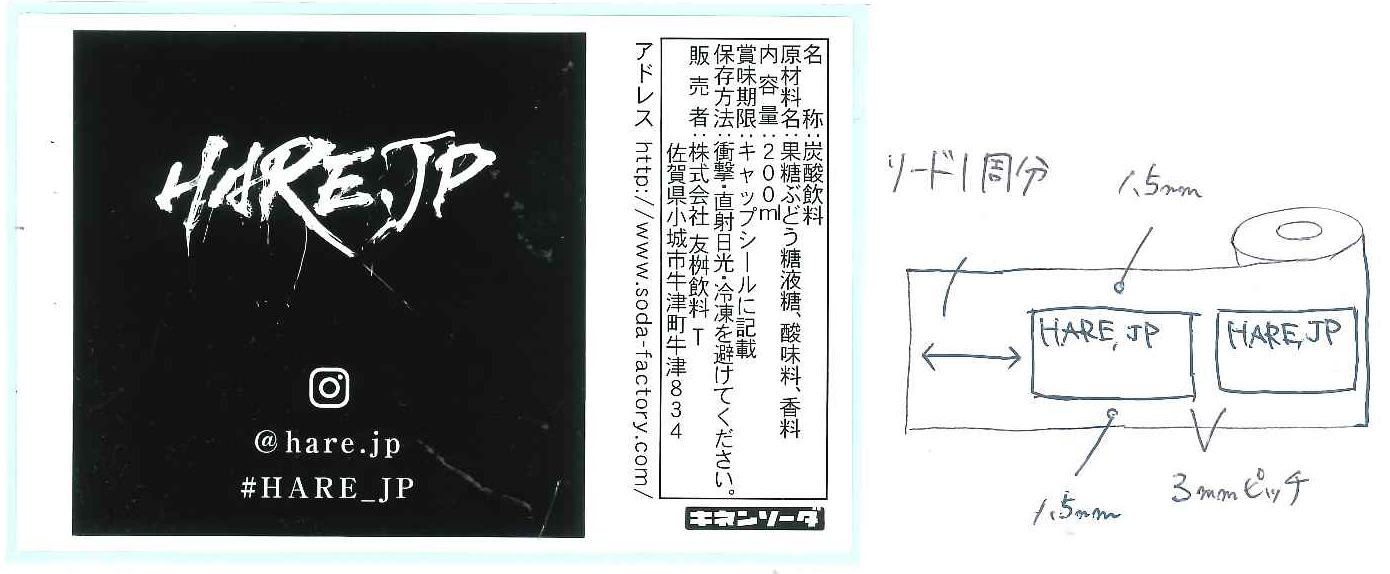 HARE.JP
@hare.jp
#HARE_JP
名称:炭酸飲料
原材料名:果糖ぶどう糖液糖、酸味料、香料
内容量:200ml
賞味期限:キャップシールに記載
保存方法:衝撃・直射日光・冷凍を避けてください。
販売者:株式会社 友桝飲料 T
佐賀県小城市牛津町牛津834
アドレス http://www.soda-factory.com/
キネンソーダ
リード1周分
1.5mm
HARE.JP
HARE.JP
1.5mm
3mmピッチ